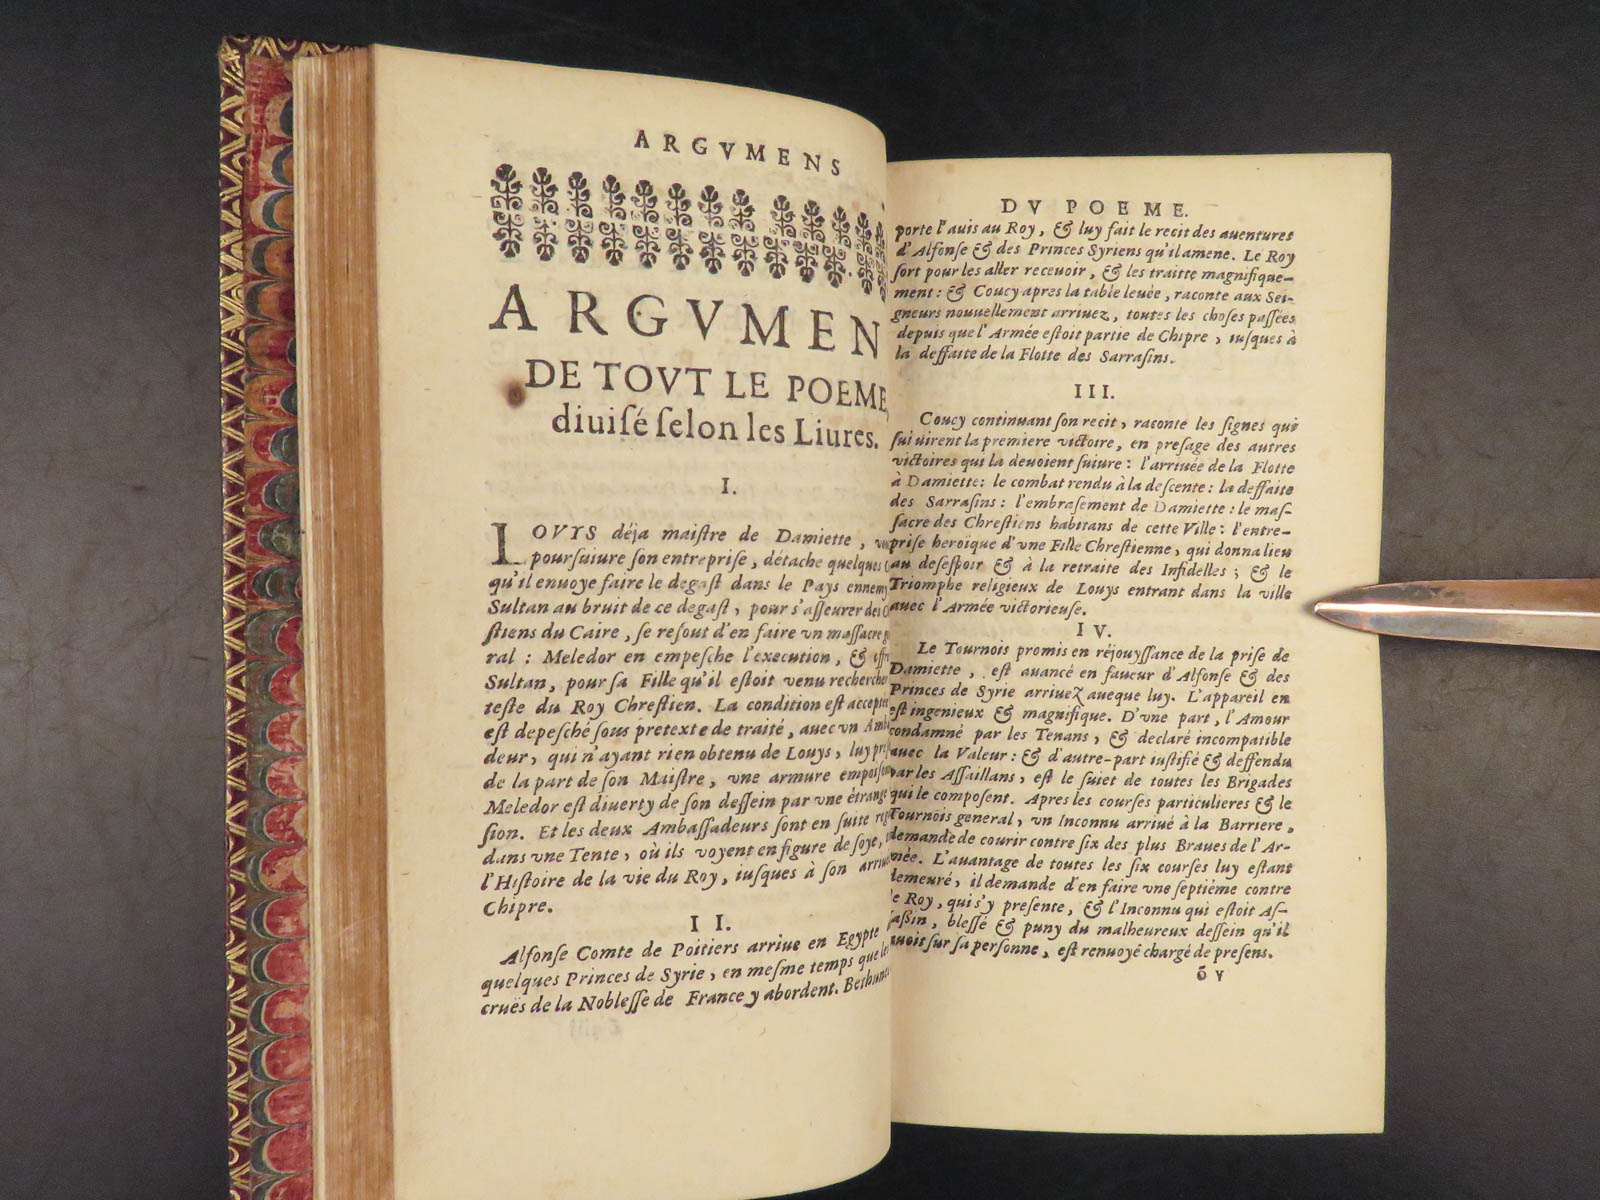 ARGVMENS
ARGVMEN
DE TOVT LE POEME
diuiſé ſelon les Liures.
I.
LOVYS déja maiſtre de Damiette,
pourſuiure ſon entrepriſe, détache quelques
qu'il enuoye faire le degaſt dans le Pays ennemy
Sultan au bruit de ce degaſt, pour s'aſſeurer des
ſtiens du Caire, ſe reſout d'en faire vn maſſacre
ral : Meledor en empeſche l'execution, &
Sultan, pour ſa Fille qu'il eſtoit venu rechercher
teſte du Roy Chreſtien. La condition eſt acceptée
eſt depeſché ſous pretexte de traité, auec vn
deur, qui n'ayant rien obtenu de Louys, luy
de la part de ſon Maiſtre, vne armure
Meledor eſt diuerty de ſon deſſein par vne étrange
ſion. Et les deux Ambaſſadeurs ſont en ſuite
dans vne Tente, où ils voyent en figure de ſoye,
l'Hiſtoire de la vie du Roy, iuſques à ſon
Chipre.
II.
Alfonſe Comte de Poitiers arriue en Egypte
quelques Princes de Syrie, en meſme temps que
cruës de la Nobleſſe de France y abordent.
DV POEME.
porte l'auis au Roy, & luy fait le recit des auentures
d'Alfonſe & des Princes Syriens qu'il amene. Le Roy
ſort pour les aller receuoir, & les traitte magnifique-
ment : & Coucy apres la table leuée, raconte aux Sei-
gneurs nouuellement arriuez, toutes les choſes paſſées
depuis que l'Armée eſtoit partie de Chipre, iuſques à
la deffaite de la Flotte des Sarraſins.
III.
Coucy continuant ſon recit, raconte les ſignes qui
ſuiuirent la premiere victoire, en preſage des autres
victoires qui la deuoient ſuiure : l'arriuée de la Flotte
à Damiette : le combat rendu à la deſcente : la deffaite
des Sarraſins : l'embraſement de Damiette : le maſ-
ſacre des Chreſtiens habitans de cette Ville : l'entre-
priſe heroïque d'vne Fille Chreſtienne, qui donna lieu
au deſeſpoir & à la retraite des Infidelles ; & le
Triomphe religieux de Louys entrant dans la ville
auec l'Armée victorieuſe.
IV.
Le Tournois promis en réjouyſſance de la priſe de
Damiette, eſt auancé en faueur d'Alfonſe & des
Princes de Syrie arriuez aueque luy. L'appareil en
eſt ingenieux & magnifique. D'vne part, l'Amour
condamné par les Tenans, & declaré incompatible
auec la Valeur : & d'autre-part iuſtifié & deffendu
par les Aſſaillans, eſt le ſuiet de toutes les Brigades
qui le compoſent. Apres les courſes particulieres & le
Tournois general, vn Inconnu arriué à la Barriere,
demande de courir contre ſix des plus Braues de l'Ar-
mée. L'auantage de toutes les ſix courſes luy eſtant
demeuré, il demande d'en faire vne ſeptiéme contre
le Roy, qui s'y preſente, & l'Inconnu qui eſtoit Aſ-
ſaſſin, bleſſé & puny du malheureux deſſein qu'il
auoit ſur ſa perſonne, eſt renuoyé chargé de preſens.
õ v